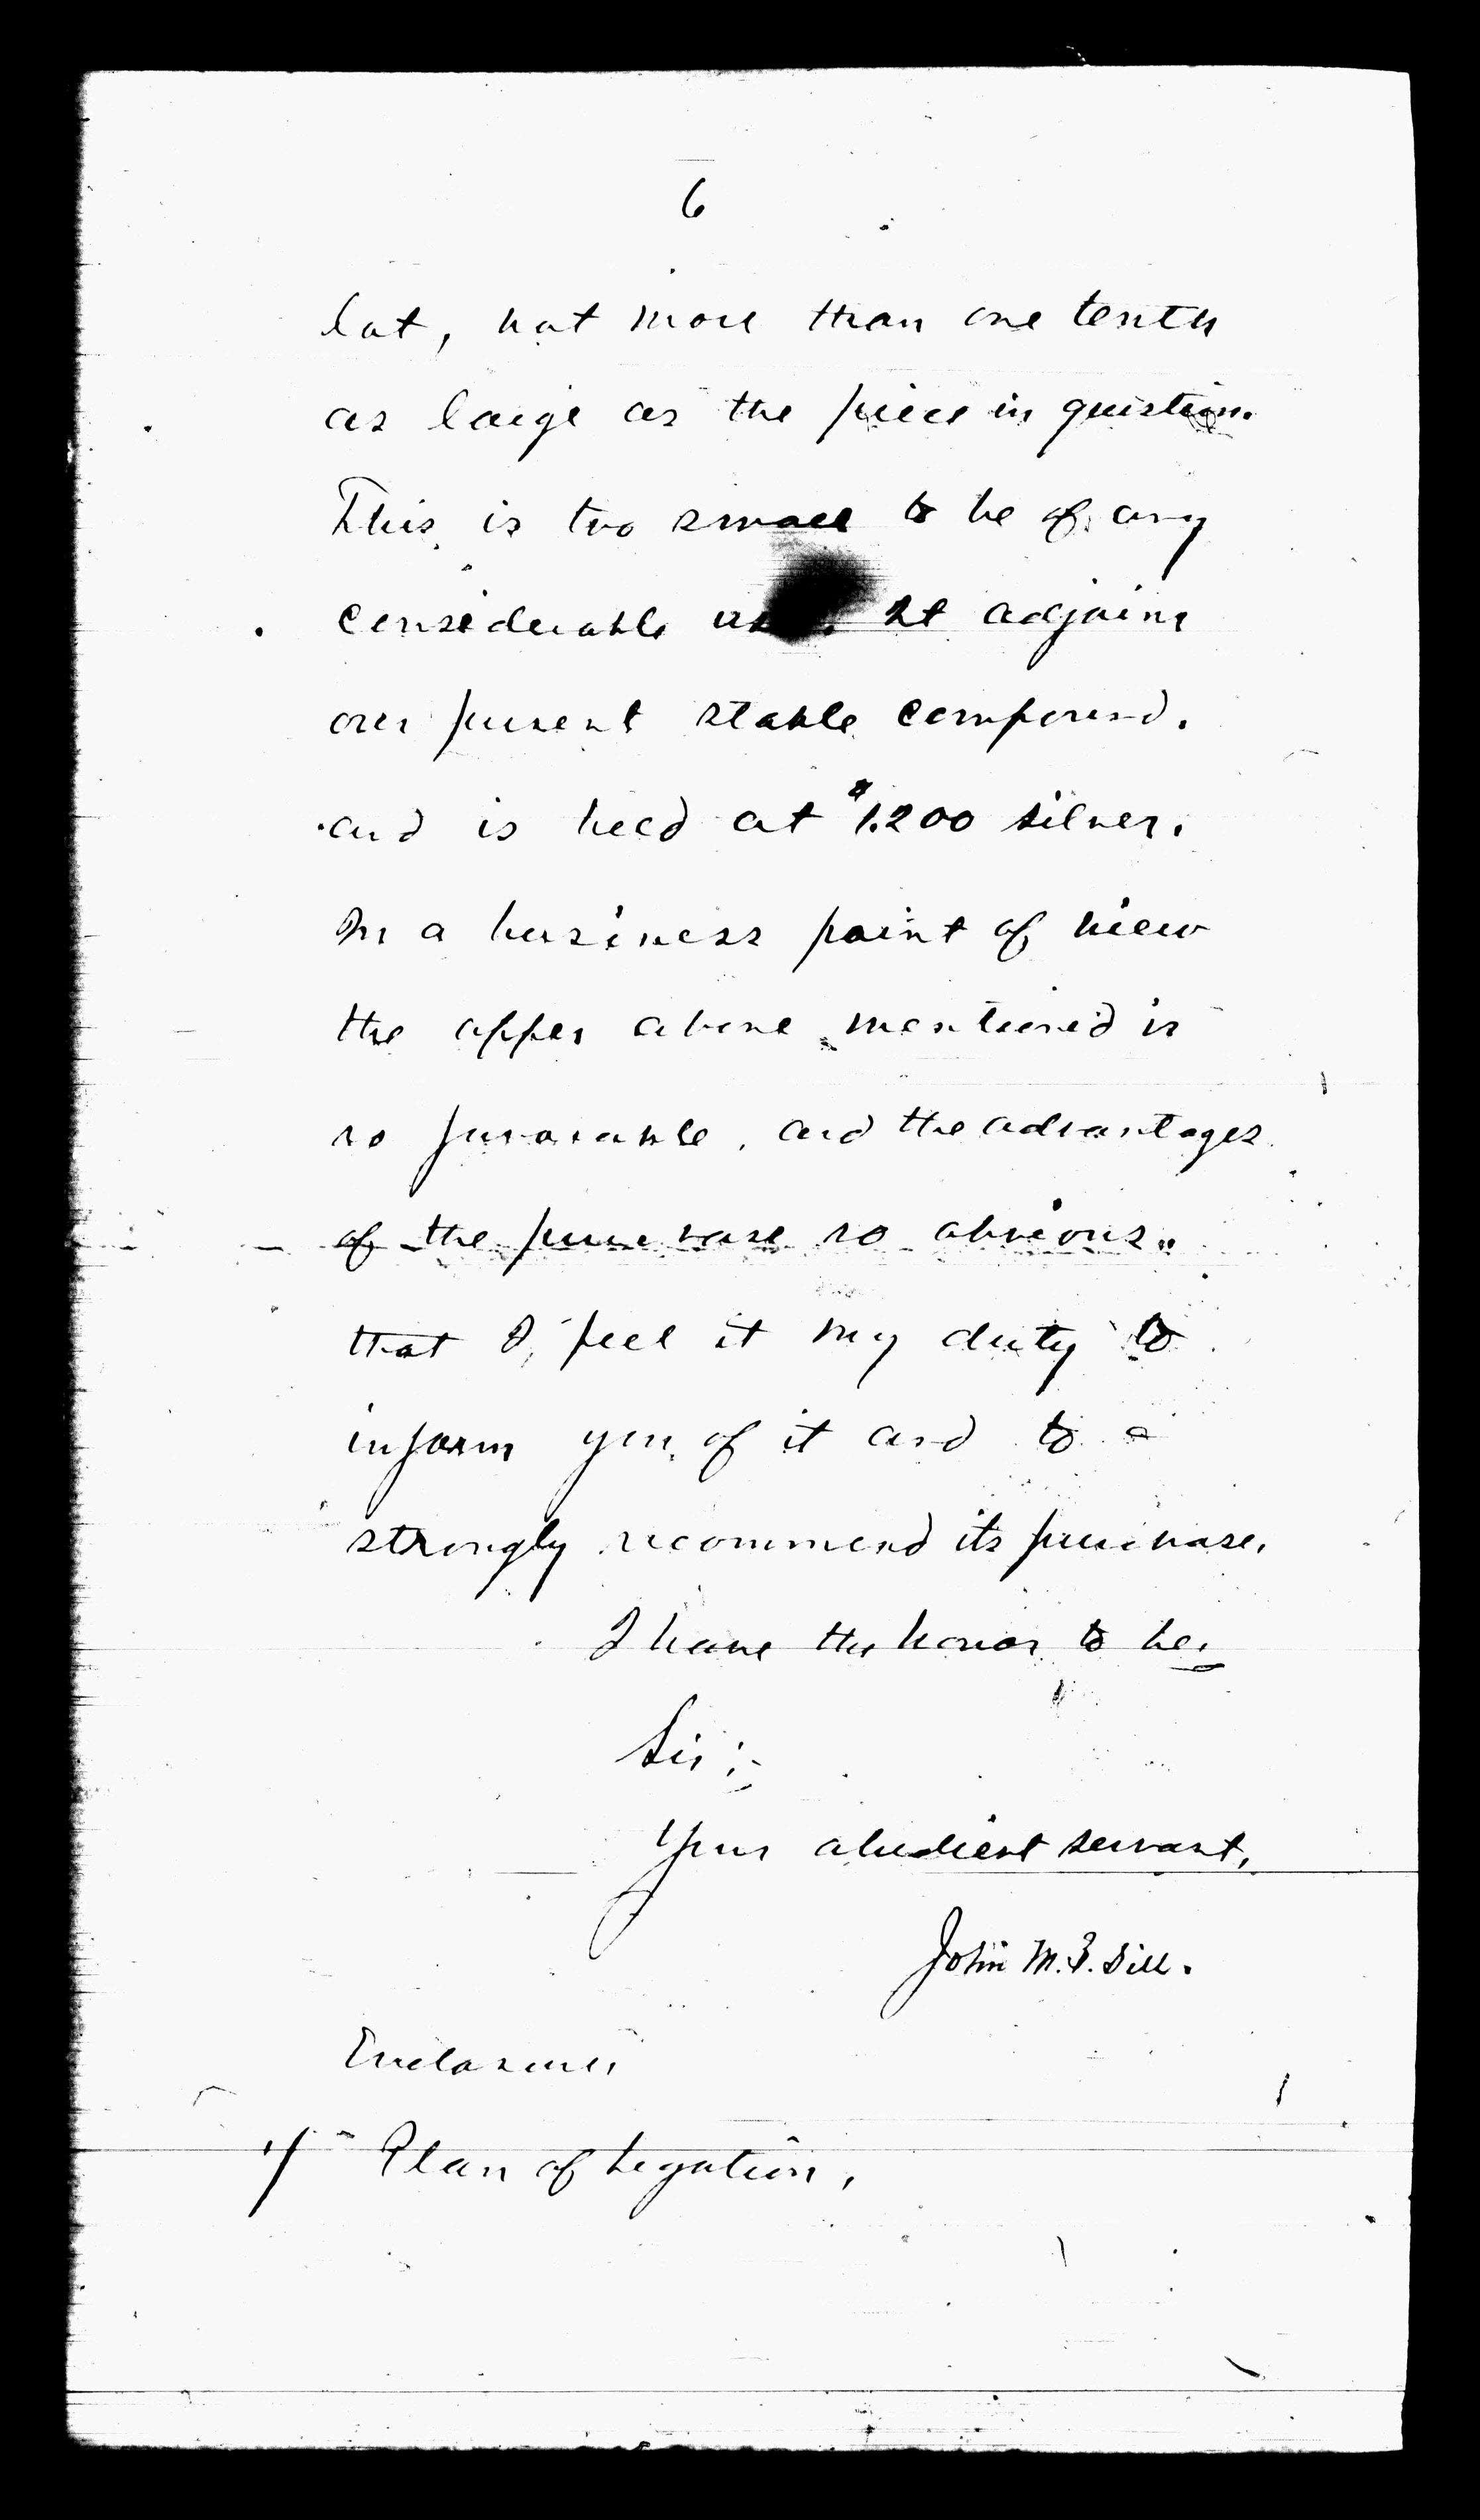 6
lot, not more than one tenth
as large as the piece in question.
This is too small to be of any
considerable use. It adjoins
our present stable compound,
and is held at $1.200 silver.
In a business point of view
the offer above mentioned is
so favorable, and the advantages
of the purchase so obvious,
that I feel it my duty to
inform you of it and to
strongly recommend its purchase.
I have the honor to be,
Sir:
Your obedient servant,
John M. B. Sill.
Enclosure,
1/ Plan of Legation.